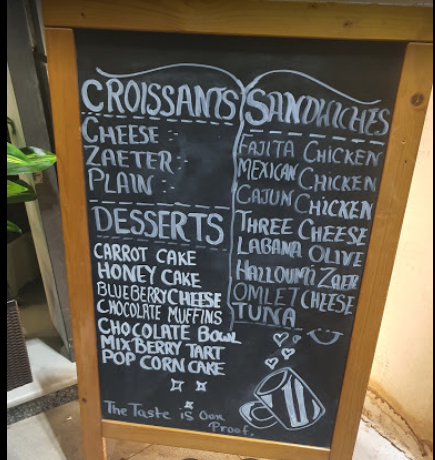 CROISSANTS
CHEESE
ZAETER
PLAIN
DESSERTS
CARROT CAKE
HONEY CAKE
BLUEBERRY CHEESE
CHOCOLATE MUFFINS
CHOCOLATE BOWL
MIX BERRY TART
POP CORN CAKE
SANDWICHES
FAJITA CHICKEN
MEXICAN CHICKEN
CAJUN CHICKEN
THREE CHEESE
LABANA OLIVE
HALLOUMI ZAER
OMLET CHEESE
TUNA
The Taste is Our
Proof.